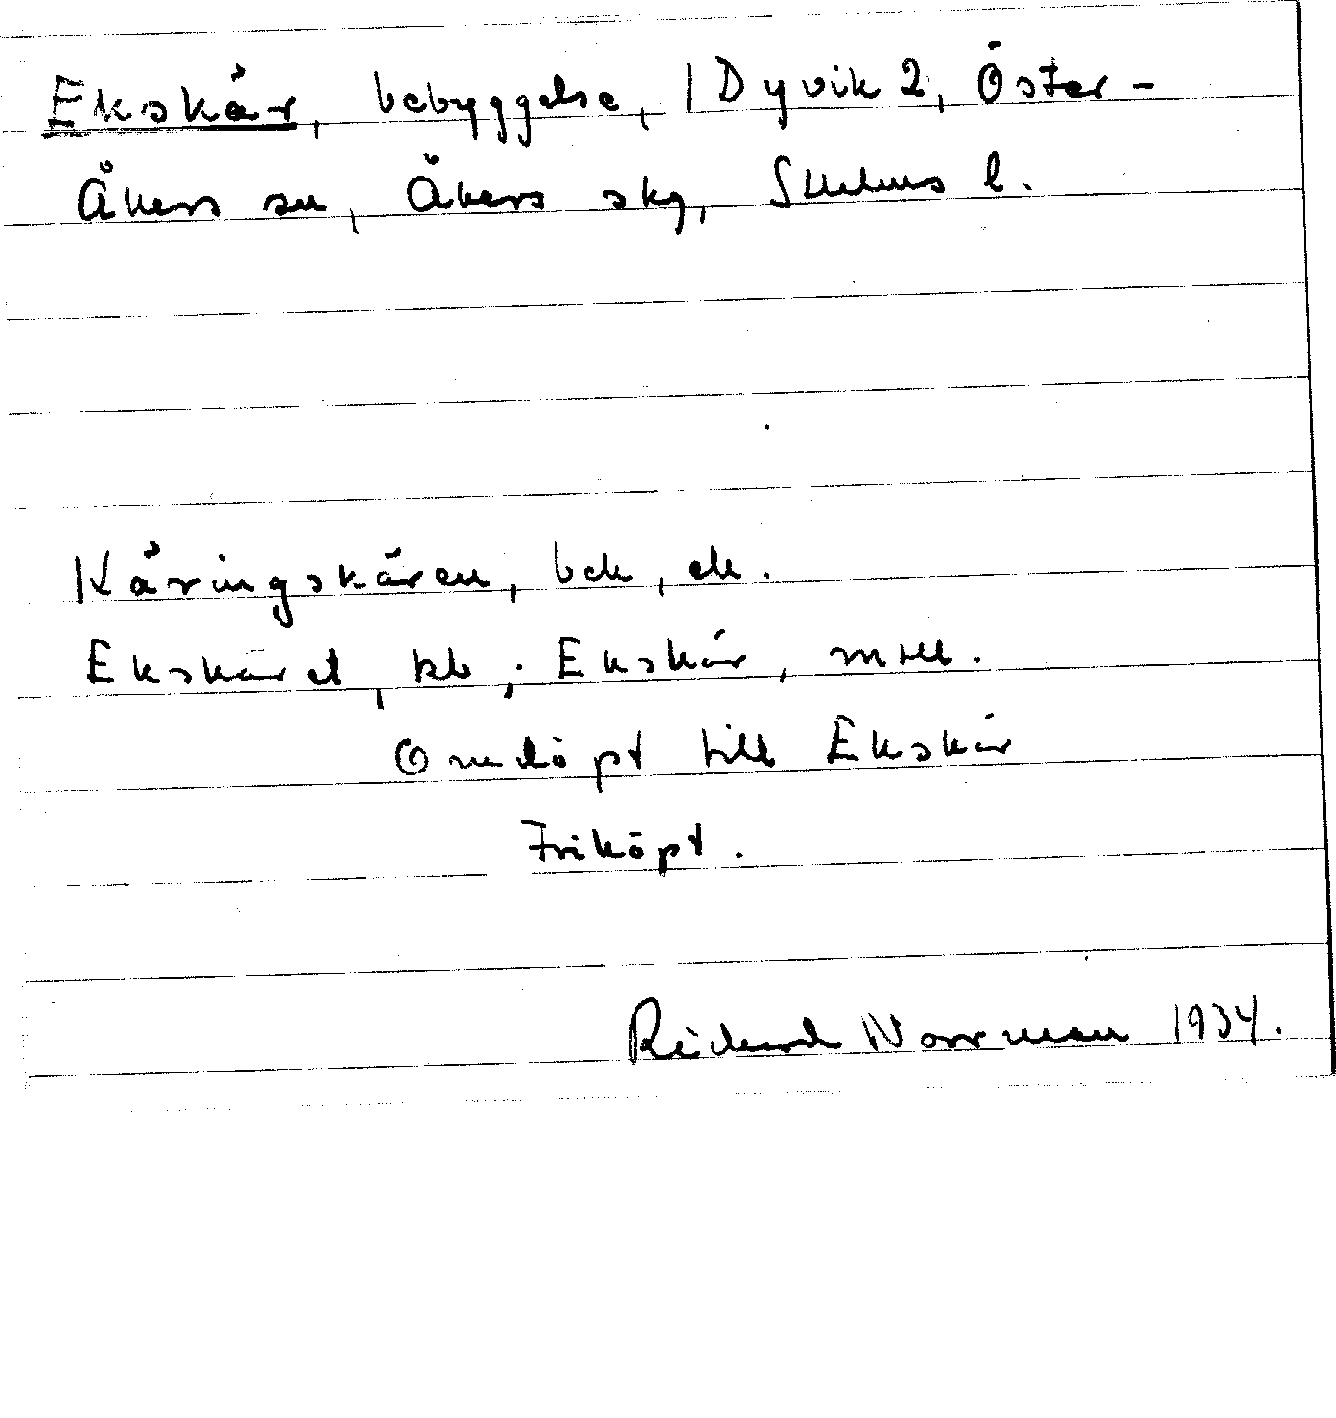 Ekskär, bebyggelse, 1 Dyvik 2, Öster-
Åkers sn, Åkers skg, Sthlms l.
Käringskären, bek, ek.
Ekskäret, kb; Ekskär, mtll.
Omdöpt till Ekskär
Friköpt.
Richard Norrman 1934.